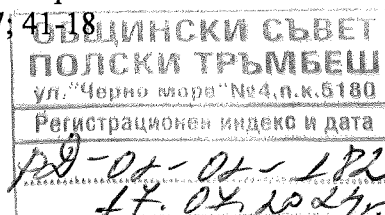 7; 41-18
ОБЩИНСКИ СЪВЕТ
ПОЛСКИ ТРЪМБЕШ
ул."Черно море"№4,п.к.5180
Регистрационен индекс и дата
РД-01-01-182
17.07.2024г